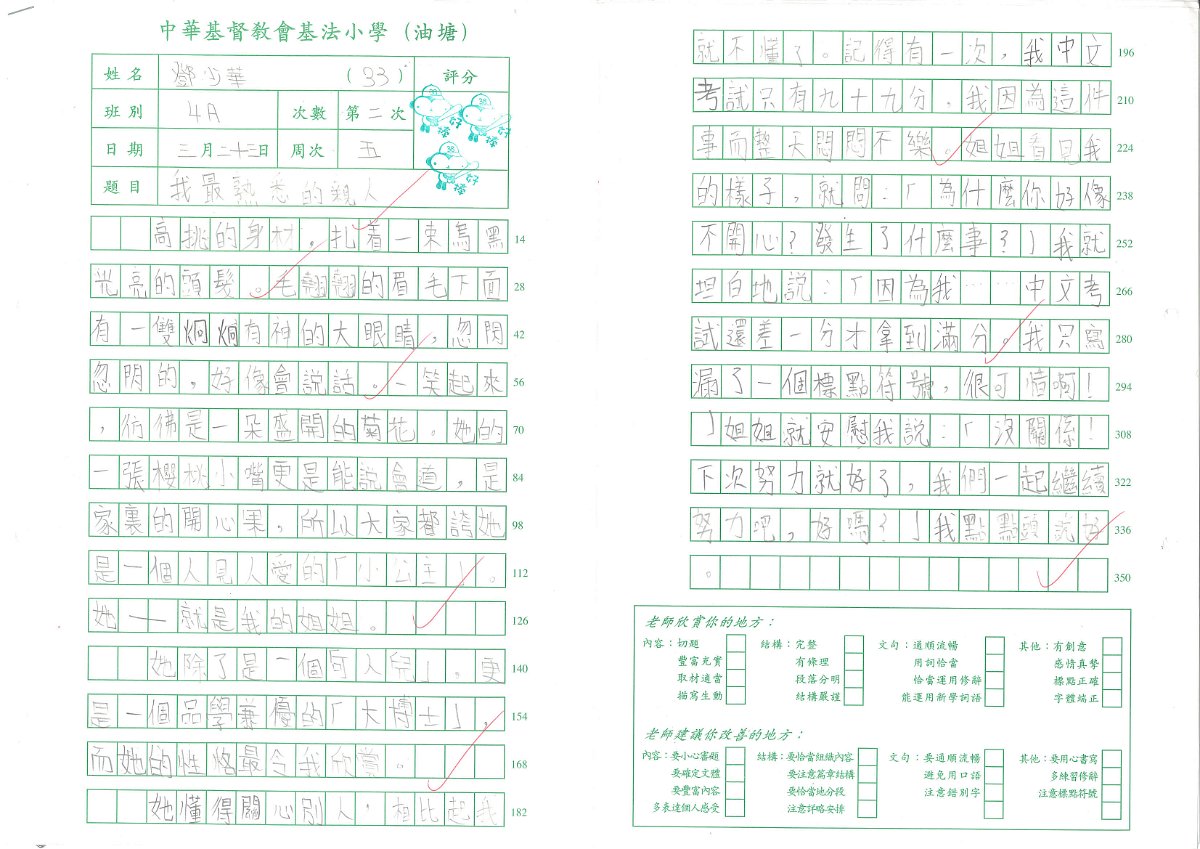 中華基督教會基法小學（油塘）
姓名 鄧少華 (33) 評分
班別 4A 次數 第二次
日期 三月二十三日 周次 五
題目 我最熟悉的親人
高挑的身材，扎着一束烏黑 14
光亮的頭髮。毛翹翹的眉毛下面 28
有一雙炯炯有神的大眼睛，忽閃 42
忽閃的，好像會說話。一笑起來 56
，彷彿是一朵盛開的菊花。她的 70
一張櫻桃小嘴更是能說會道，是 84
家裏的開心果，所以大家都誇她 98
是一個人見人愛的「小公主」。 112
她——就是我的姐姐。 126
她除了是一個可人兒」，更 140
是一個品學兼優的「大博士」， 154
而她的性格最令我欣賞。 168
她懂得關心別人，相比起我 182
就不懂了。記得有一次，我中文 196
考試只有九十九分，我因為這件 210
事而整天悶悶不樂。姐姐看見我 224
的樣子，就問：「為什麼你好像 238
不開心？發生了什麼事？」我就 252
坦白地說：「因為我……中文考 266
試還差一分才拿到滿分。我只寫 280
漏了一個標點符號，很可惜啊！ 294
」姐姐就安慰我說：「沒關係！ 308
下次努力就好了，我們一起繼續 322
努力吧，好嗎？」我點點頭說好 336
。 350
老師欣賞你的地方：
內容：切題 結構：完整 文句：通順流暢 其他：有創意
豐富充實 有條理 用詞恰當 感情真摯
取材適當 段落分明 恰當運用修辭 標點正確
描寫生動 結構嚴謹 能運用新學詞語 字體端正
老師建議你改善的地方：
內容：要小心審題 結構：要恰當組織內容 文句：要通順流暢 其他：要用心書寫
要確定文體 要注意篇章結構 避免用口語 多練習修辭
要豐富內容 要恰當地分段 注意錯別字 注意標點符號
多表達個人感受 注意詳略安排